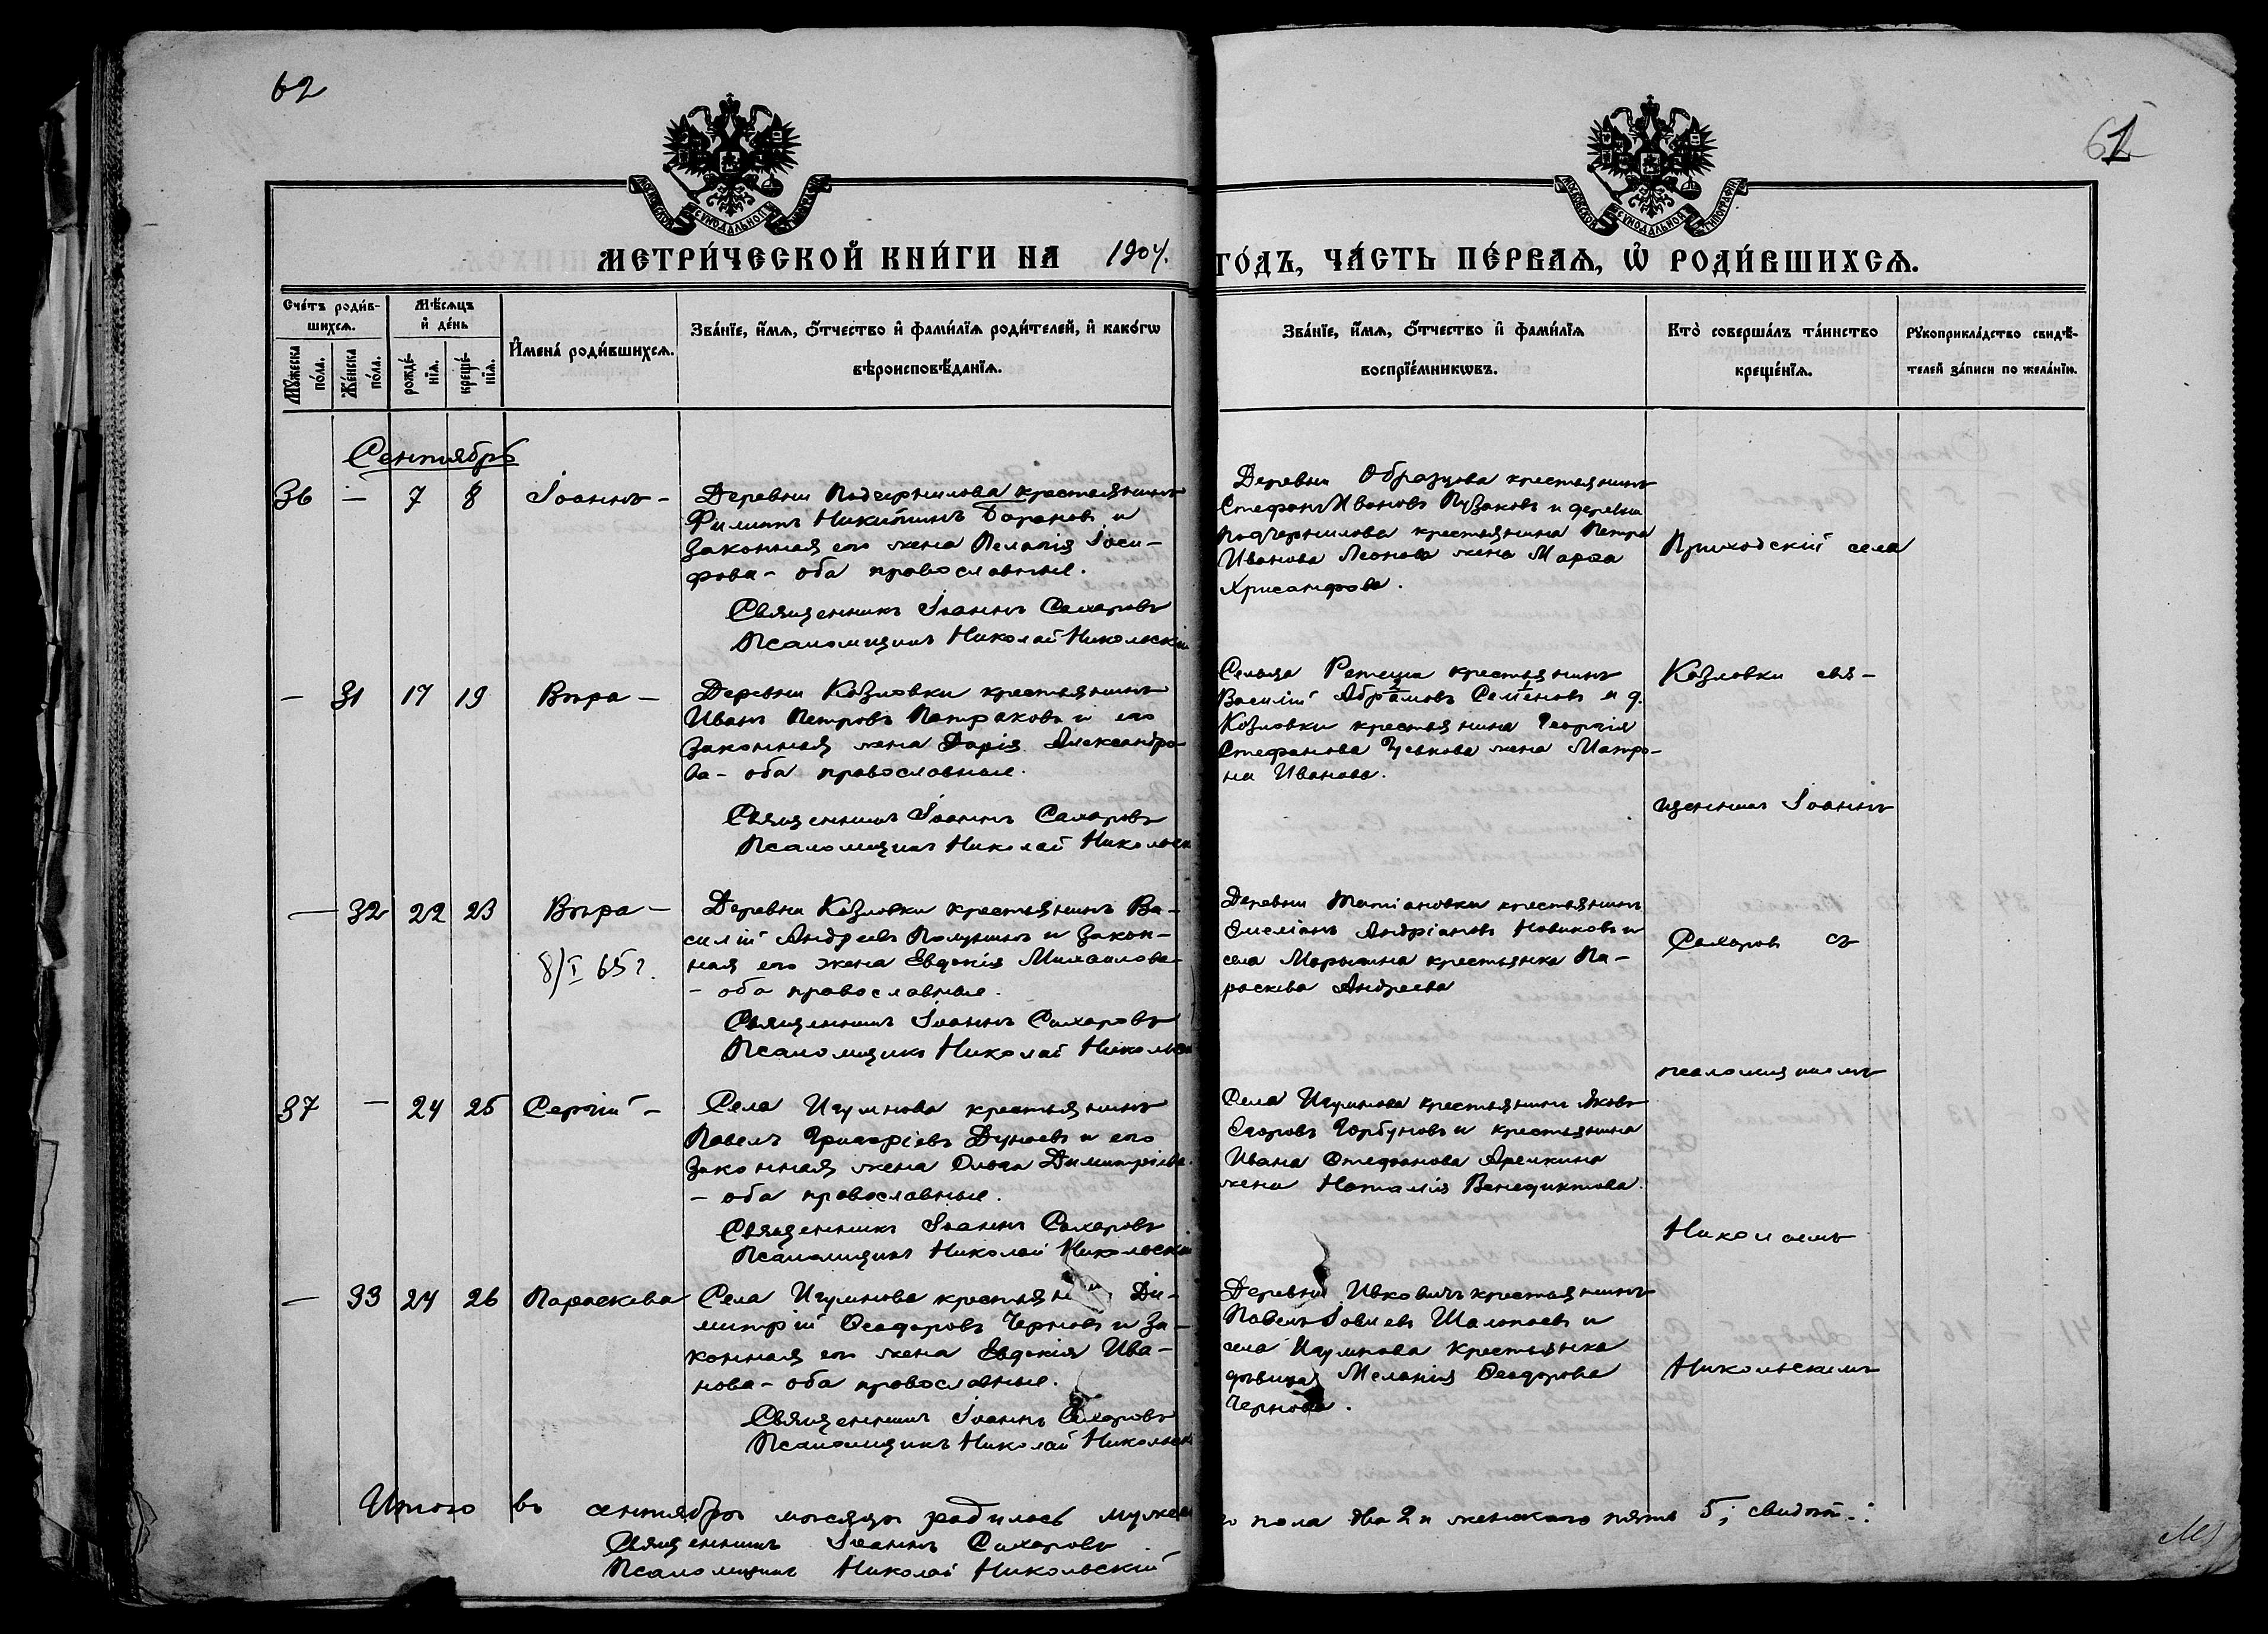 62
61
МОСКОВСКОЙ СѴНОДАЛЬНОЙ ТИПОГРАФІИ
МОСКОВСКОЙ СѴНОДАЛЬНОЙ ТИПОГРАФІИ
МЕТРИ́ЧЕСКОЙ КНИ́ГИ НА 1904.
ГО́ДЪ, ЧА́СТЬ ПЕ́РВАѦ, Ѡ҆ РОДИ́ВШИХСѦ.
Сче́тъ роди́в-
шихсѧ.
Мѣ́сѧцъ
и҆ де́нь
Мꙋ́жеска
по́ла.
Же́нска
по́ла.
рожде́-
нїѧ.
креще́-
нїѧ.
И҆мена́ роди́вшихсѧ.
Зва́нїе, и҆́мѧ, ѻ҆́тчество и҆ фами́лїѧ роди́телей, и҆ како́гѡ
вѣроисповѣ́данїѧ.
Зва́нїе, и҆́мѧ, ѻ҆́тчество и҆ фами́лїѧ
воспрїе́мникѡвъ.
Кто̀ соверша́лъ та́инство
креще́нїѧ.
Рꙋкоприкла́дство свидѣ́-
телей за́писи по жела́нїю.
Сентябрь
36 — 7 8 Іоаннъ -
Деревни Подчернилова крестьянинъ
Филиппъ Никитинъ Барановъ и
законная его жена Пелагія Іоси-
фова - оба православные.
Священникъ Іоаннъ Сахаровъ
Псаломщикъ Николай Никольскій
Деревни Образцова крестьянинъ
Стефанъ Ивановъ Пузаковъ и деревни
Подчернилова крестьянина Петра
Иванова Леонова жена Марѳа
Хрисанфова.
Приходскій села
— 31 17 19 Вѣра —
Деревни Козловки крестьянинъ
Иванъ Петровъ Петраковъ и его
законная жена Дарія Александро-
ва - оба православные.
Священникъ Іоаннъ Сахаровъ
Псаломщикъ Николай Никольск
Сельца Ретеши крестьянинъ
Василій Абрамовъ Семеновъ и д.
Козловки крестьянина Георгія
Стефанова жена Матро-
на Иванова.
Козловки свя-
щенникъ Іоаннъ
— 32 22 23 Вѣра —
8/I 65 г.
Деревни Козловки крестьянинъ Ва-
силій Андреевъ Полунинъ и закон-
ная его жена Евдокія Михаилова
- оба православные.
Священникъ Іоаннъ Сахаровъ
Псаломщикъ Николай Никольск
Деревни Татіановки крестьянинъ
Емеліанъ Андріановъ Новиковъ и
села Марынина крестьянка Па-
раскева Андреева
Сахаровъ съ
псаломщикомъ
37 — 24 25 Сергій —
Села Игумнова крестьянинъ
Павелъ Григоріевъ Дунаевъ и его
законная жена Ольга Димитріева
- оба православные.
Священникъ Іоаннъ Сахаровъ
Псаломщикъ Николай Никольскій
Села Игумнова крестьянинъ Яковъ
Егоровъ Горбуновъ и крестьянина
Ивана Стефанова Арелкина
жена Наталія Венедиктова.
Николаемъ
— 33 24 26 Параскева
Села Игумнова крестьянинъ Ди-
митрій Ѳеодоровъ Черновъ и за-
конная его жена Евдокія Ива-
нова - оба православные.
Священникъ Іоаннъ Сахаровъ
Псаломщикъ Николай Никольск
Деревни Ивковичъ крестьянинъ
Павелъ Іовлевъ Шалопаевъ и
села Игумнова крестьянка
дѣвица Меланія Ѳеодорова
Чернова.
Никольскимъ
Итого въ сентябрѣ мѣсяцѣ родилось мужск
го пола два 2 и женскаго пять 5; свидѣт.:
Священникъ Іоаннъ Сахаровъ
Псаломщикъ Николай Никольскій